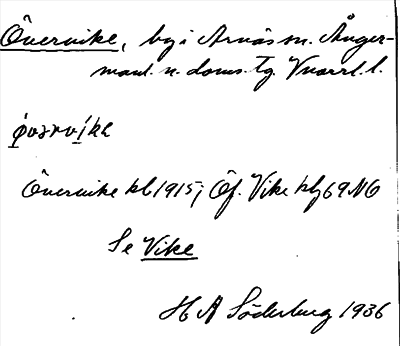 Övervike, by i Arnäs sn. Ånger-
manl. n. doms. tg. Vnorrl. l.
Övervike kb 1915; Öf. Vike kfg 69 NO
Se Vike
H A Söderberg 1936